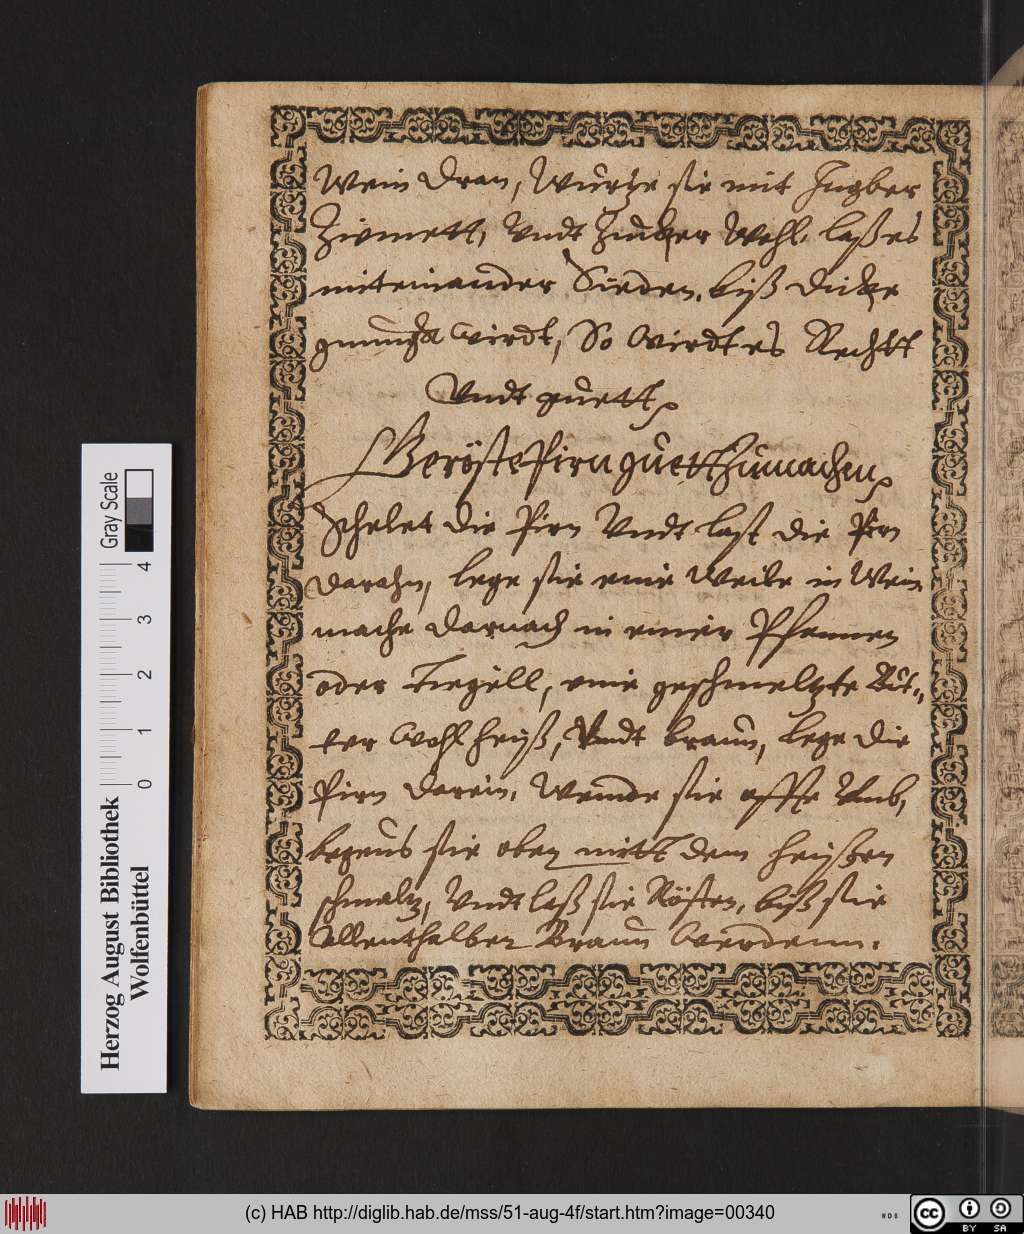 Wein dran, Würtze sie mit Ingber
Zimmett, Vndt Zucker Wohl, laß es
miteinander Sieden, biß dicke
gnungk wirdt, So wirdt es Rechtt
Vndt guett,
Geröste Pirn guett Zumachen,
Schelet die Pirn Vndt last die Stiel
darahn, lege sie eine Weile in Wein
mache darnach in einer Pfannen
oder Tiegell, eine geschmeltzte But-,
ter Wohl heyß, Vndt braun, lege die
Pirn darein, Wende sie offte Vmb,
begeus sie oben mitt dem heyßen
schmaltz, Vndt laß sie Rösten, biß sie
Allenthalben Braun Werdenn.
Herzog August Bibliothek
Wolfenbüttel
0 1 2 3 4
Gray Scale
(c) HAB http://diglib.hab.de/mss/51-aug-4f/start.htm?image=00340
WDB
cc BY SA